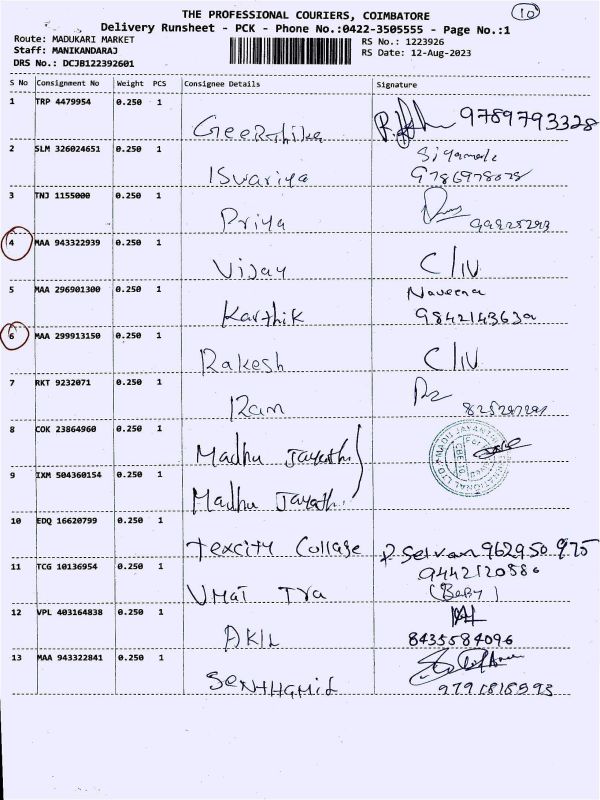 THE PROFESSIONAL COURIERS, COIMBATORE
10
Delivery Runsheet - PCK - Phone No.:0422-3505555 - Page No.:1
Route: MADUKARI MARKET
RS No.: 1223926
Staff: MANIKANDARAJ
RS Date: 12-Aug-2023
DRS No.: DCJB122392601
S No Consignment No Weight PCS Consignee Details Signature
1 TRP 4479954 0.250 1
Geerthika 9789793328
2 SLM 326024651 0.250 1
Iswariya
3 TNJ 1155000 0.250 1
Priya
4 MAA 943322939 0.250 1
Vijay C/IV
5 MAA 296901300 0.250 1 Naveena
Karthik 9842143639
6 MAA 299913150 0.250 1
Rakesh C/IV
7 RKT 9232071 0.250 1
Ram
8 COK 23864960 0.250 1
Madhu Jayathi
9 IXM 504360154 0.250 1
Madhu Jayathi
10 EDQ 16620799 0.250 1
Texcity Collage P. Selvan 962950 975
11 TCG 10136954 0.250 1 9442120586
UMAI TRA (Baby)
12 VPL 403164838 0.250 1
AKIL 8435584096
13 MAA 943322841 0.250 1
SENTHAMIL